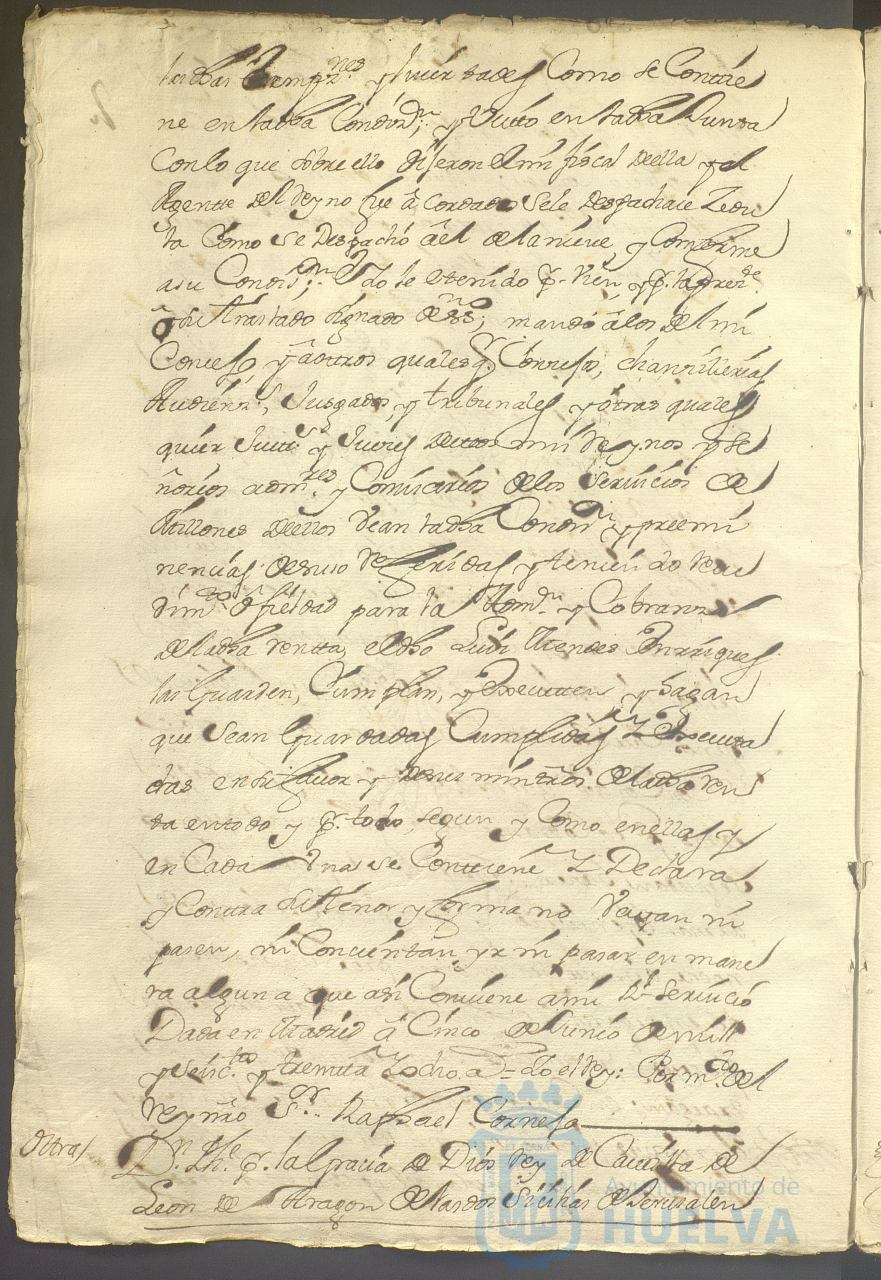 las dhas exempz.nes y livertades Como se Contie
ne en la dha Condiz.n; y Visto en la dha Junta
Con lo que sobre ello dijeron el mi fiscal de ella y el
Agente del Reyno fue acordado se le Despachase Zedu
la Como se Despachó a el de la nieve, y Comforme
a su Condiz.n; Yo lo he tenido p.r vien, y p.r la pres.te
o su traslado signado de ss.no; mando a los del mi
Consejo y a otros quales q.r Consejos, chanzillerias,
Audienz.s, Jusgados, y tribunales y otros quales
quier Juezes y Justi.s de estos mis Reynos y se
ñorios adm.res y Comisarios de los Servicios de
Millones de ellos Vean la dha Condiz.n y preemi
nencias de suso Referidas y teniendo Recu
dim.to o fieldad para la Adm.n y Cobranza
de la dha rentta, el dho Luis Mendes Enrriques
las Guarden, Cumplan, y Executten y hagan
que Sean Guardadas Cumplidas y Executa
das en su favor y de sus ministros de la dha Ren
ta en todo y p.r todo, segun y Como en ellas y
en Cada Una se Contiene y Declara
y Contra su tenor y forma no Vayan ni
pasen, ni Concientan yr ni pasar en mane
ra alguna que asi Conviene a mi R.l Servicio
Dada en Madrid a Cinco de Junio de mill
y seisc.tos y treinta y ocho a.s = Yo el Rey: Por m.do del
Rey nro S.r Raphael Cornejo
Ottra
D.n Phe. p.r la Gracia de Dios Rey de Castilla de
Leon de Aragon de las dos Sicilias de Jerusalen
Ayuntamiento de
HUELVA